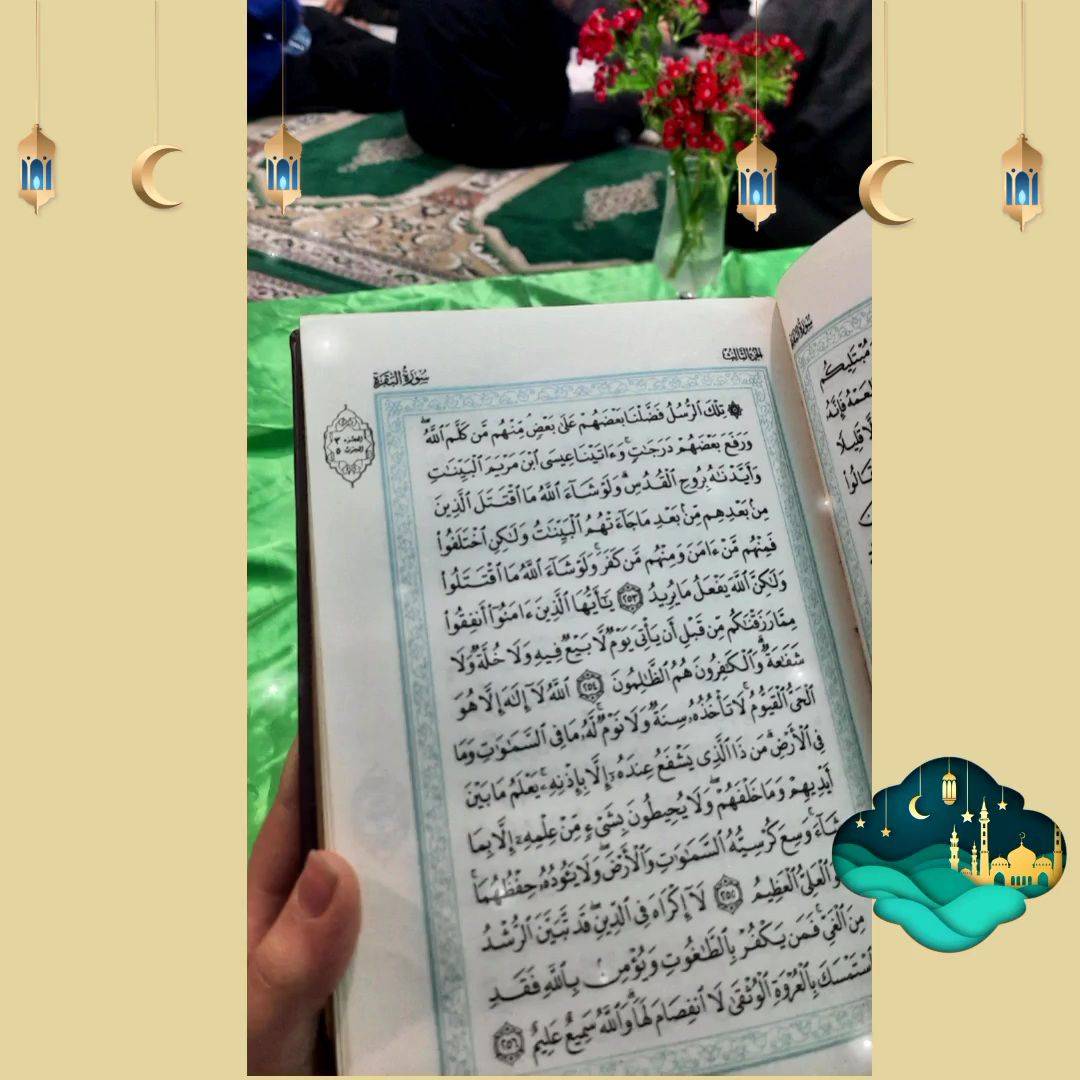 سُورَةُ البَقَرَةِ
الجزء الثالث
الجزء ٣
الحزب ٥
۞ تِلْكَ ٱلرُّسُلُ فَضَّلْنَا بَعْضَهُمْ عَلَىٰ بَعْضٍ مِّنْهُم مَّن كَلَّمَ ٱللَّهُ ۖ
وَرَفَعَ بَعْضَهُمْ دَرَجَٰتٍ ۚ وَءَاتَيْنَا عِيسَى ٱبْنَ مَرْيَمَ ٱلْبَيِّنَٰتِ
وَأَيَّدْنَٰهُ بِرُوحِ ٱلْقُدُسِ ۗ وَلَوْ شَآءَ ٱللَّهُ مَا ٱقْتَتَلَ ٱلَّذِينَ
مِنۢ بَعْدِهِم مِّنۢ بَعْدِ مَا جَآءَتْهُمُ ٱلْبَيِّنَٰتُ وَلَٰكِنِ ٱخْتَلَفُوا۟
فَمِنْهُم مَّنْ ءَامَنَ وَمِنْهُم مَّن كَفَرَ ۚ وَلَوْ شَآءَ ٱللَّهُ مَا ٱقْتَتَلُوا۟
وَلَٰكِنَّ ٱللَّهَ يَفْعَلُ مَا يُرِيدُ ٢٥٣ يَٰٓأَيُّهَا ٱلَّذِينَ ءَامَنُوٓا۟ أَنفِقُوا۟
مِمَّا رَزَقْنَٰكُم مِّن قَبْلِ أَن يَأْتِىَ يَوْمٌ لَّا بَيْعٌ فِيهِ وَلَا خُلَّةٌ وَلَا
شَفَٰعَةٌ ۗ وَٱلْكَٰفِرُونَ هُمُ ٱلظَّٰلِمُونَ ٢٥٤ ٱللَّهُ لَآ إِلَٰهَ إِلَّا هُوَ
ٱلْحَىُّ ٱلْقَيُّومُ ۚ لَا تَأْخُذُهُۥ سِنَةٌ وَلَا نَوْمٌ ۚ لَّهُۥ مَا فِى ٱلسَّمَٰوَٰتِ وَمَا
فِى ٱلْأَرْضِ ۗ مَن ذَا ٱلَّذِى يَشْفَعُ عِندَهُۥٓ إِلَّا بِإِذْنِهِۦ ۚ يَعْلَمُ مَا بَيْنَ
أَيْدِيهِمْ وَمَا خَلْفَهُمْ ۖ وَلَا يُحِيطُونَ بِشَىْءٍ مِّنْ عِلْمِهِۦٓ إِلَّا بِمَا
شَآءَ ۚ وَسِعَ كُرْسِيُّهُ ٱلسَّمَٰوَٰتِ وَٱلْأَرْضَ ۖ وَلَا يَـُٔودُهُۥ حِفْظُهُمَا ۚ
ٱلْعَلِىُّ ٱلْعَظِيمُ ٢٥٥ لَآ إِكْرَاهَ فِى ٱلدِّينِ ۖ قَد تَّبَيَّنَ ٱلرُّشْدُ
مِنَ ٱلْغَىِّ ۚ فَمَن يَكْفُرْ بِٱلطَّٰغُوتِ وَيُؤْمِنۢ بِٱللَّهِ فَقَدِ
ٱسْتَمْسَكَ بِٱلْعُرْوَةِ ٱلْوُثْقَىٰ لَا ٱنفِصَامَ لَهَا ۗ وَٱللَّهُ سَمِيعٌ عَلِيمٌ ٢٥٦
مُبْتَلِيكُم
قَلِيلًا
قَالُوا۟